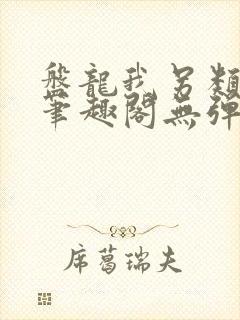 盤龍我另類
筆趣閣無彈
席葛瑞夫